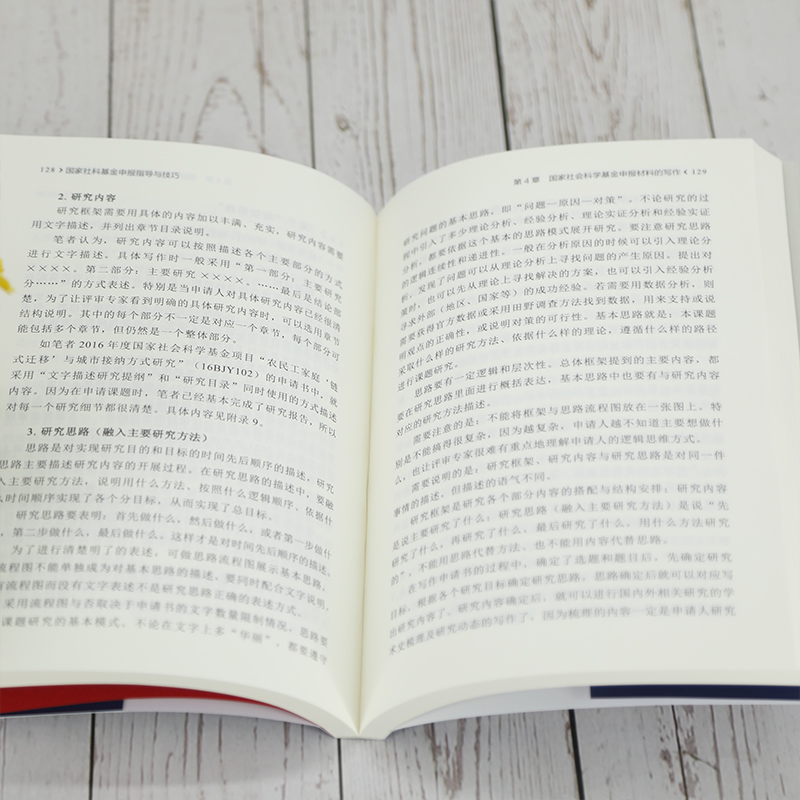 128 > 国家社科基金申报指导与技巧
2. 研究内容
研究框架需要用具体的内容加以丰满、充实，研究内容需要
用文字描述，并列出章节目录说明。
笔者认为，研究内容可以按照描述各个主要部分的方式
进行文字描述。具体写作时一般采用“第一部分：主要研究
××××。第二部分：主要研究××××。……最后是结论部
分……”的方式表述。特别是当申请人对具体研究内容已经很清
楚，为了让评审专家看到明确的具体研究内容时，可以选用章节
结构说明。其中的每个部分不一定是对应一个章节，每个部分可
能包括多个章节，但仍然是一个整体部分。
如笔者 2016 年度国家社会科学基金项目“农民工家庭‘链
式迁移’与城市接纳方式研究”（16BJY102）的申请书中，就
采用“文字描述研究提纲”和“研究目录”同时使用的方式描述
内容。因为在申请课题时，笔者已经基本完成了研究报告，所以
对每一个研究细节都很清楚。具体内容见附录 9。
3. 研究思路（融入主要研究方法）
思路是对实现研究目的和目标的时间先后顺序的描述，研究
思路主要描述研究内容的开展过程。在研究思路的描述中，要融
入主要研究方法，说明用什么方法、按照什么逻辑顺序、依据什
么时间顺序实现了各个分目标，从而实现了总目标。
研究思路要表明：首先做什么，然后做什么，或者第一步做什
，第二步做什么，最后做什么。这样才是对时间先后顺序的描述。
为了进行清楚明了的表述，可做思路流程图展示基本思路，
流程图不能单独成为对基本思路的描述，要同时配合文字说明。
流程图而没有文字表述不是研究思路正确的表述方式。
采用流程图与否取决于申请书的文字数量限制情况，思路要
课题研究的基本模式。不论在文字上多“华丽”，都要遵守
第 4 章 国家社会科学基金申报材料的写作 < 129
研究问题的基本思路，即“问题—原因—对策”，不论研究的过
程中引入了多少理论分析、经验分析、理论实证分析和经验实证
分析，都要依据这个基本的思路模式展开研究。要注意研究思路
的逻辑连续性和递进性。一般在分析原因的时候可以引入理论分
析，发现了问题可以从理论分析上寻找问题的产生原因。提出对
策时，也可以先从理论上寻找解决的方案，也可以引入经验分析
寻求外部（地区、国家等）的成功经验。若需要用数据分析，则
需要获得官方数据或采用田野调查方法找到数据，用来支持或说
明观点的正确性，或说明对策的可行性。基本思路就是：本课题
采取什么样的研究方法、依据什么样的理论，遵循什么样的路径
进行课题研究。
思路要有一定逻辑和层次性。总体框架提到的主要内容，都
要在研究思路里面进行概括表达，基本思路中也要有与研究内容
对应的研究方法描述。
需要注意的是：不能将框架与思路流程图放在一张图上。特
别是不能搞得很复杂，因为越复杂，申请人越不知道主要想做什
么，也让评审专家很难有重点地理解申请人的逻辑思维方式。
需要说明的是，研究框架、研究内容与研究思路是对同一件
事情的描述，但描述的语气不同。
研究框架是研究各个部分内容的搭配与结构安排；研究内容
是说主要研究了什么；研究思路（融入主要研究方法）是说“先
研究了什么，再研究了什么，最后研究了什么，用什么方法研究
的”，不能用思路代替方法、也不能用内容代替思路。
在写作申请书的过程中，确定了选题和题目后，先确定研究
目标，根据各个研究目标确定研究思路，思路确定后就可以对应写
出研究内容了。研究内容确定后，就可以进行国内外相关研究的学
术史梳理及研究动态的写作了。因为梳理的内容一定是申请人研究